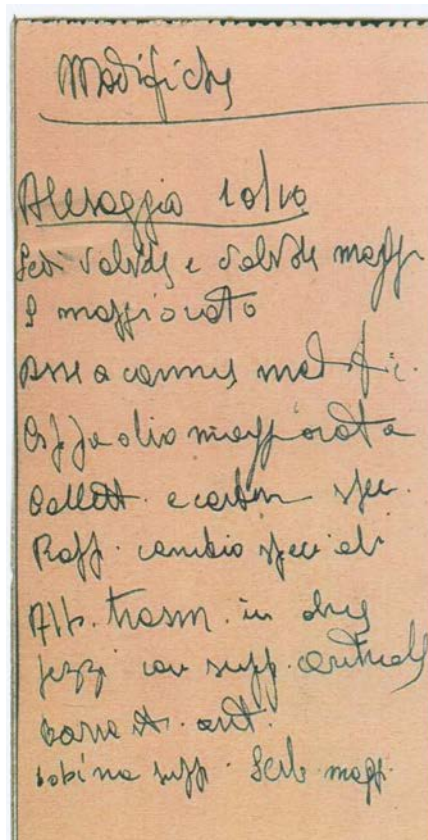 Modifiche
Alesaggio 10/10
Sedi valvole e valvole magg.
P maggiorato
Asse a cammes modific.
Coppa olio maggiorata
Collett. e carbur. spec.
Rapp. cambio speciali
Alb. trasm. in due
pezzi con supp. centrale
barra st. ant.
bobina supp. Serb. magg.